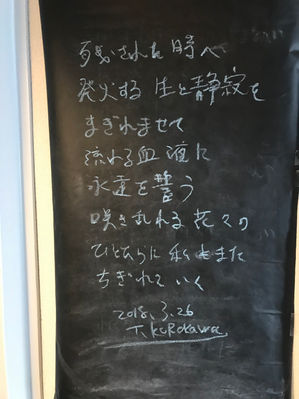 残された時へ
発火する 生と静寂を
まぎれませて
流れる血液に
永遠を誓う
咲き乱れる花々の
ひとひらに私もまた
ちぎれていく
2018. 3. 26
T. KUROKAWA